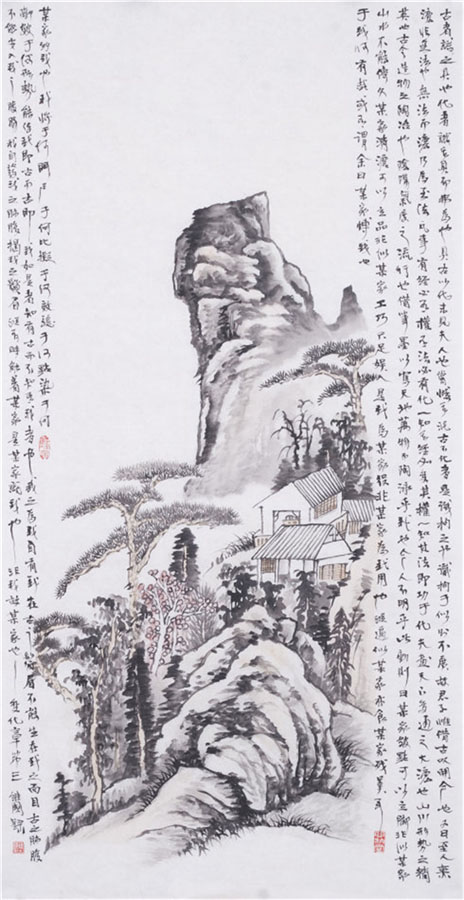 古者識之具也化者識其具而弗為也具古以化未見夫人也嘗憾其泥古不化者是識拘之也識拘于似則不廣故君子惟借古以開今也又曰至人無
法非無法也無法而法乃為至法凡事有經必有權有法必有化一知其經即變其權一知其法即功于化夫畫天下變通之大法也山川形勢之精
英也古今造物之陶冶也陰陽氣度之流行也借筆墨以寫天地萬物而陶泳乎我也今人不明乎此動則曰某家皴點可以立腳非似某家
山水不能傳久某家清澹可以立品非似某家工巧只足娛人是我為某家役非某家為我用也縱逼似某家亦食某家殘羹耳
于我何有哉或有謂余曰某家博我也
某家約我也我將于何門戶于何比擬于何效驗于何點染于何
皴于何形勢能使我即古而古即我如是者知有古而不知有我者也我之為我自有我在古之鬚眉不能生在我之面目古之肺腑
不能安入我之腹腸我自發我之肺腑揭我之鬚眉縱有時觸著某家是某家就我也非我故為某家也變化章第三維國